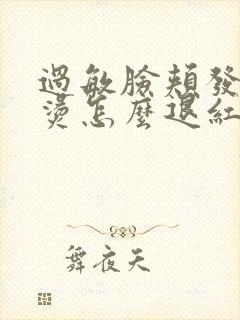 過敏臉頰發
燙怎麼退紅
舞夜天